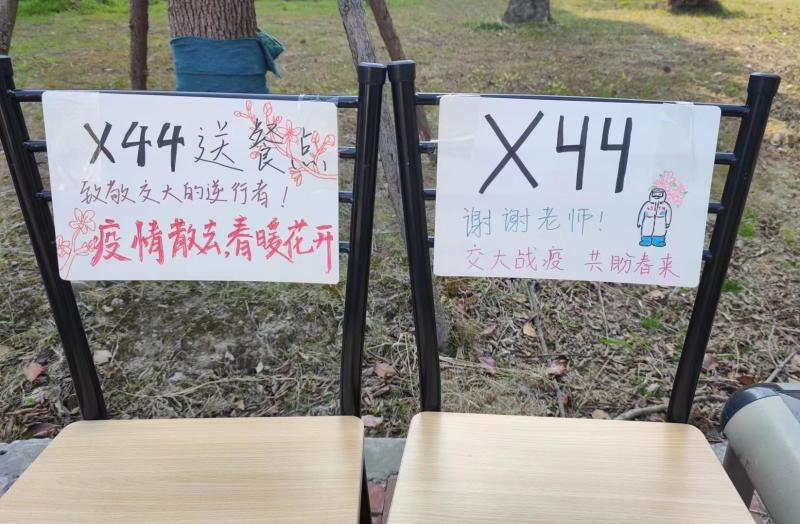 X44送餐点
致敬交大的逆行者！
疫情散去，春暖花开
X44
谢谢老师！
交大战疫 共盼春来